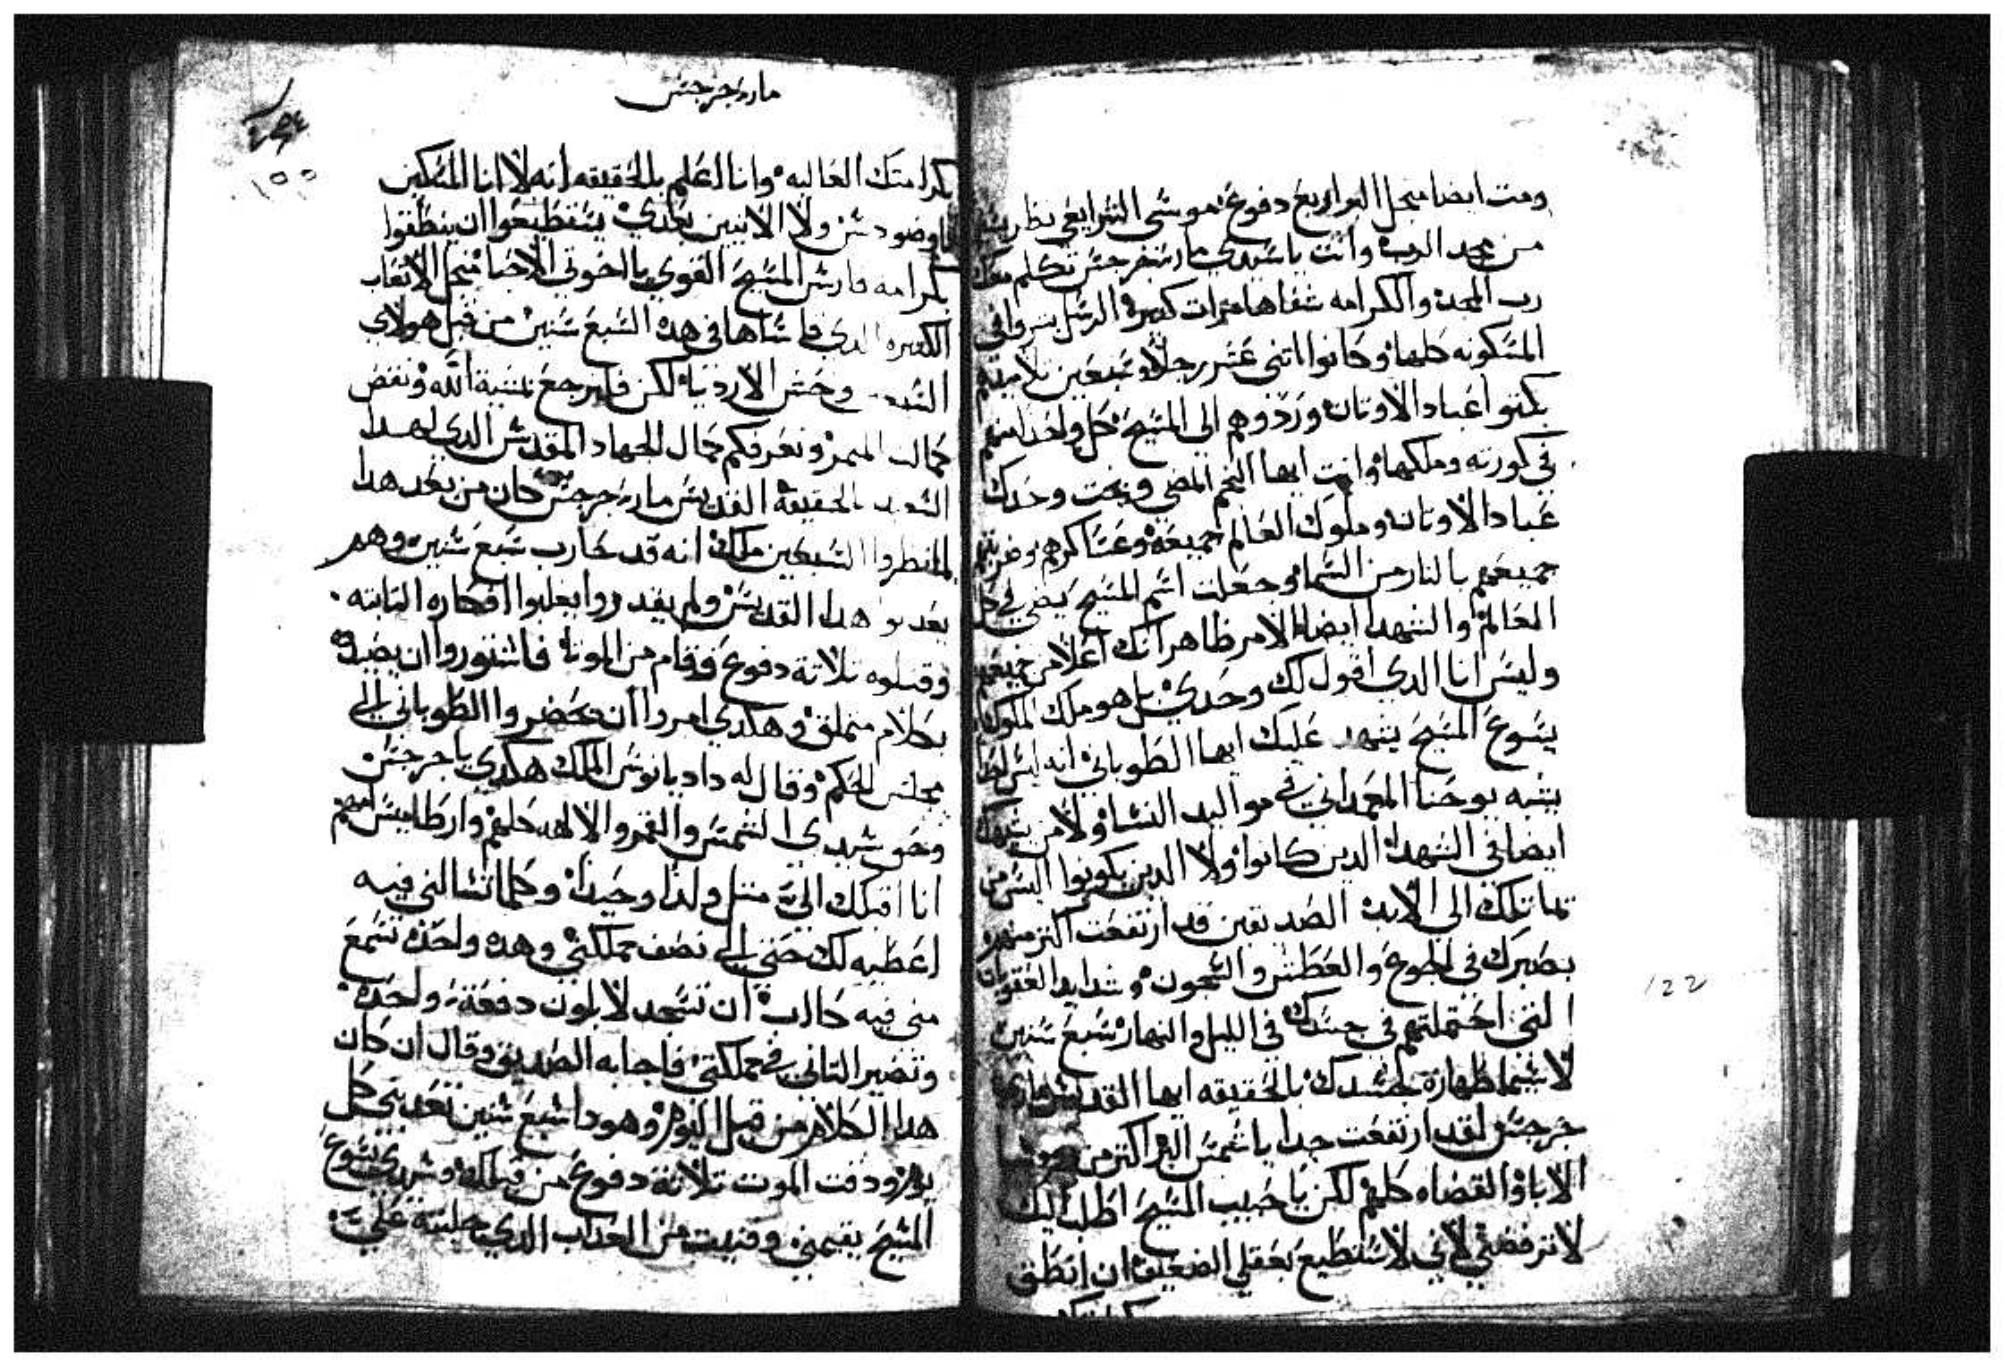 ومت ايضا منجل العوا اربع دفوع موسى الشرايعي نظر يشير
من مجد الرب وانت ياسيدي مارستفرجس تكلم معك
رب المجد والكرامه شفاها مرات كتيره الرسل بشروا في
المسكونه كلها وكانوا اتنى عشر رجلا وسبعين تلاميد
بكتوا عباد الاوتان وردوهم الى المسيح كل واحد منهم
في كورته وملكها وانت ايها النجم المضي وبخت وحدك
عباد الاوتان وملوك العالم جميعه وعساكرهم وغربتهم
جميعهم بالنار من السما وجعلت اسم المسيح يضي في كل
العالم والشهدا ايضا الامر ظاهر انك اعلا من جميعهم
وليس انا الدي اقول لك وحدي بل هو ملك الملوك
يسوع المسيح يشهد عليك ايها الطوباني انه ليس احد
يشبه يوحنا المعمداني في مواليد النسا ولا من يشبهك
ايضا في الشهدا الدين كانوا ولا الدين يكونوا اليس من
تماتلك الى الابد الصديقين قد ارتفعت اكتر منهم
بصبرك في الجوع والعطش والسجون وشدايد العقوبات
التي احتملتهم في جسدك في الليل والنهار سبع سنين
لاسيما طهارة جسدك بالحقيقه ايها القديس ماري
جرجس لقد ارتفعت جدا ياشمس البر اكتر من
الابا والقضاه كلهم لكن ياحبيب المسيح اطلب اليك
لاترفضني لاني لا استطيع بعقلي الضعيف ان انطق
مارى جرجس
١٥٥
كرامتك العاليه وانا اعلم بالحقيقه انه لا انا المسكين
تاوضودسس ولا الاتيين بعدي يستطيعوا ان ينطقوا
بكرامه فارس المسيح القوي يااخوتي الاحبا منجل الاتعاب
الكتيره الدي قاساها في هده السبع سنين من قبل هولاي
السبعين وحس الارديا لكن فلنرجع بمشية الله ونقص
كمال الميمر ونعرفكم كمال الجهاد المقدس الدي لهدا
الشهيد بالحقيقة القديس مارى جرجس كان من بعد هدا
لما نظروا السبعين ملك انه قد حارب سبع سنين وهم
يعدبوا هدا القديس ولم يقدروا يغلبوا افكاره التابته
وقتلوه تلاتة دفوع وقام من الموتا فاشتوروا ان يضلوه
بكلام متملق وهكدي امروا ان يحضروا الطوباني الى
مجلس الحكم وقال له داديانوس الملك هكدي ياجرجس
وحق سيدي الشمس والقمر والالهه كلهم وارطاميس امهم
انا اقبلك اليّ متل ولدا وحيدا وكلما تسالني فيه
اعطيه لك حتي الى نصف مملكتي وهده واحده تسمع
مني فيه كالاب ان تسجد لابلون دفعة واحده
وتصير التاني في مملكتي فاجابه الصديق وقال ان كان
هدا الكلام من قبل اليوم وهودا سبع سنين تعدبني كل
يوم ودقت الموت تلاتة دفوع من قبلك وسيدي يسوع
المسيح يقيمني وقنيت من العداب الدي جلبته علي
122